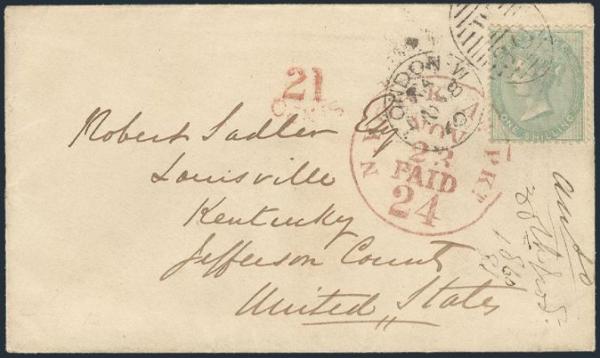 21
CENTS
LONDON-W
N. YORK AM PKT
NOV
23
PAID
24
ONE SHILLING
Robert Sadler Esq
Louisville
Kentucky
Jefferson County
United States
1860